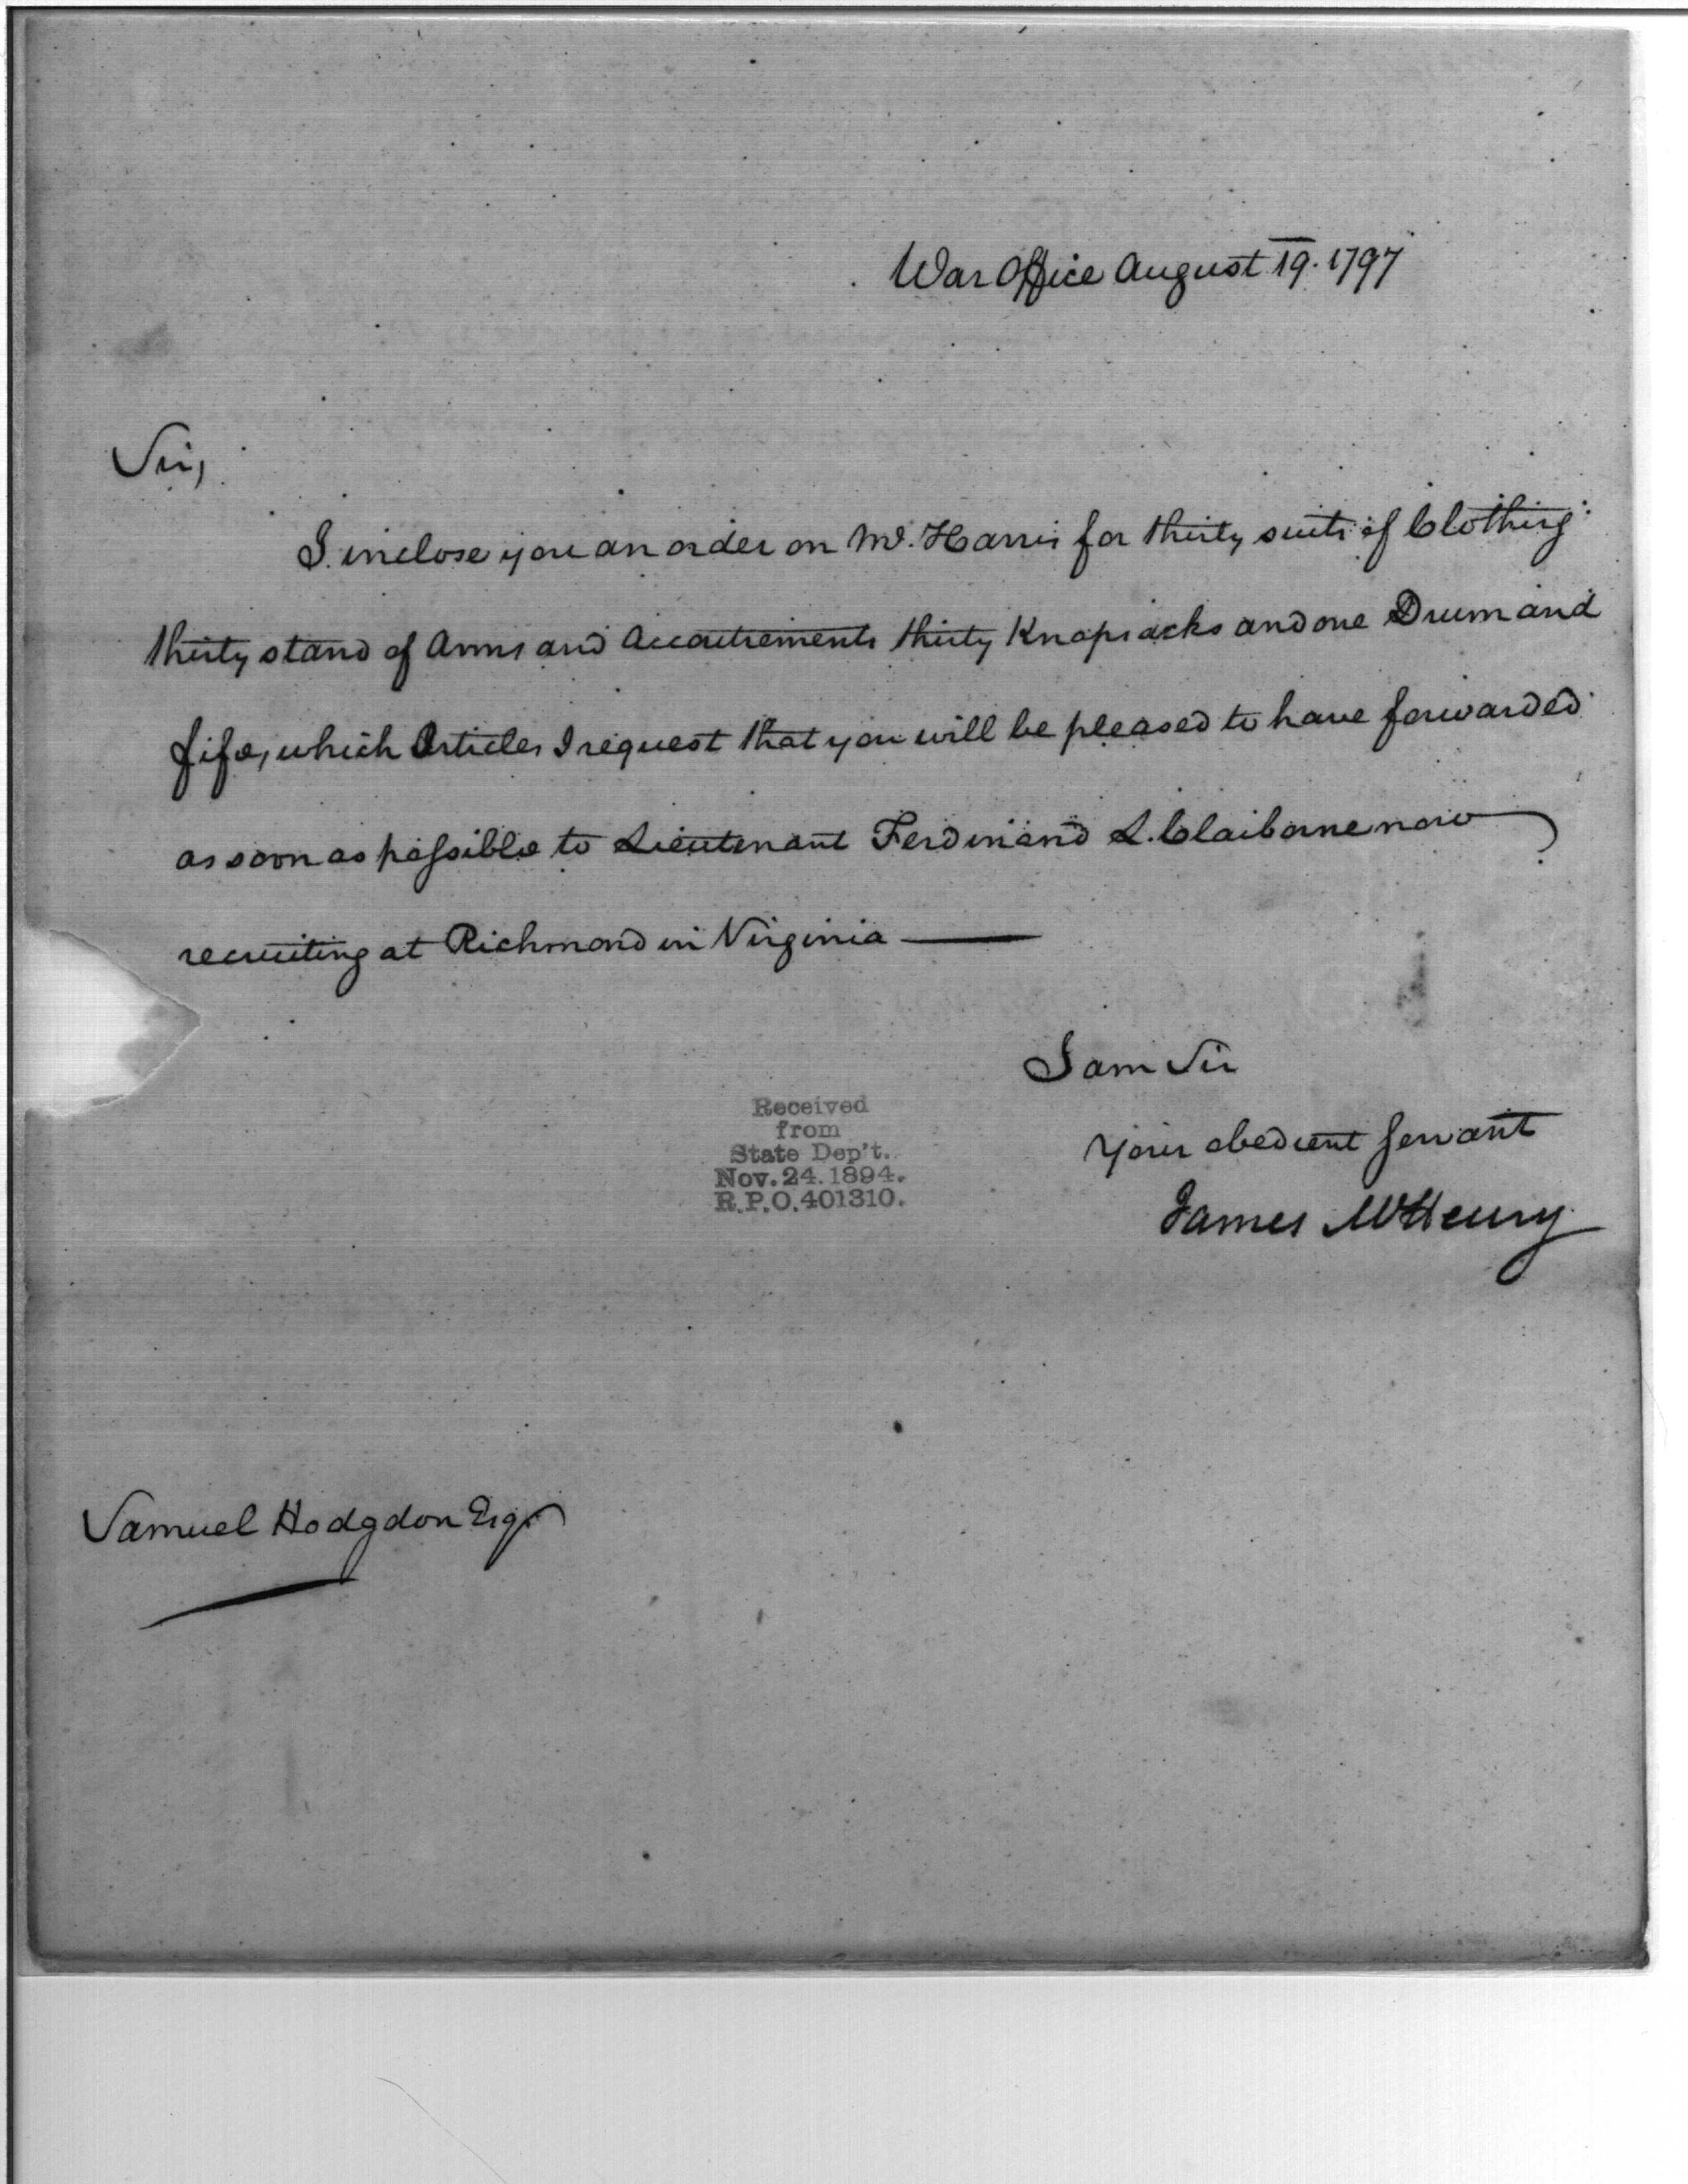 War Office August 19. 1797
Sir,
I inclose you an order on Mr. Harris for thirty suits of Clothing
thirty stand of Arms and Accoutrements thirty Knapsacks and one Drum and
fife, which Articles I request that you will be pleased to have forwarded
as soon as possible to Lieutenant Ferdinand L. Claiborne now
recruiting at Richmond in Virginia —
I am Sir
Your obedient servant
James McHenry
Received
from
State Dep't.
Nov. 24. 1894.
R.P.O. 401310.
Samuel Hodgdon Esqr